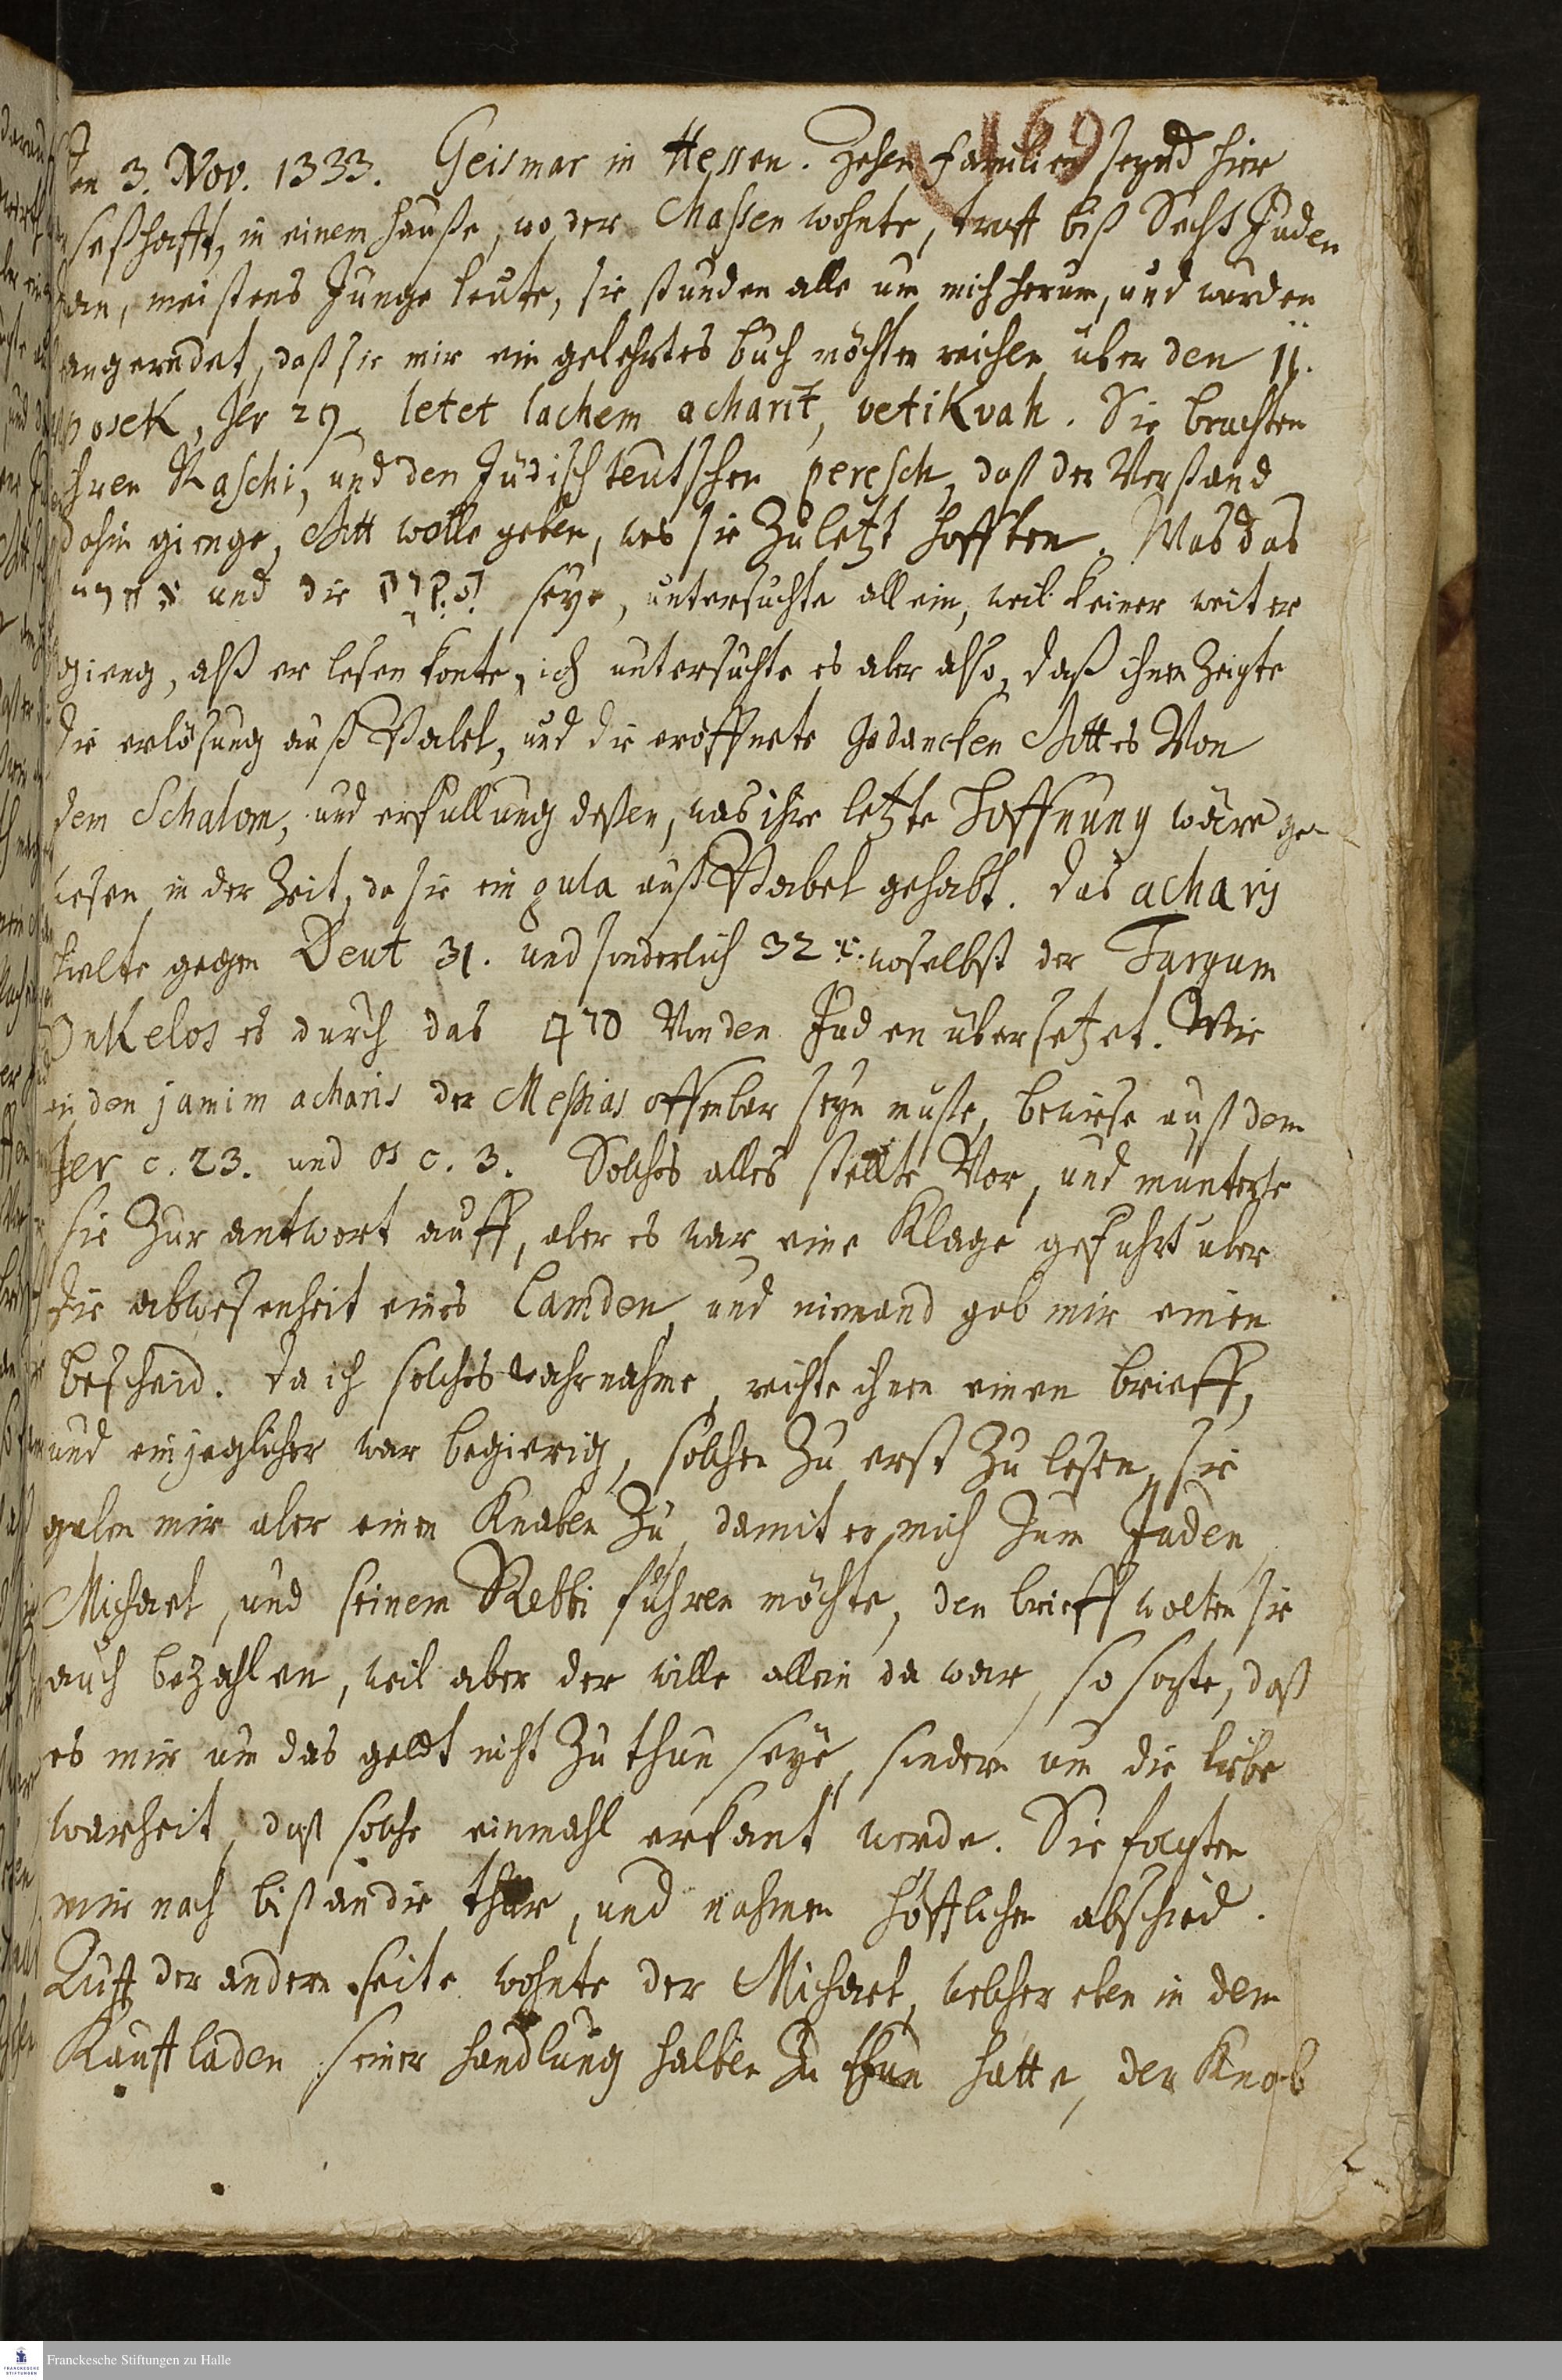 169
Den 3. Nov. 1733. Geismar in Hessen. Zehen Familien seynd hier
seßhafft, in einem Hauße, wo der Chassen wohnte, traff biß Sechs Juden
an, meistens Junge leute, sie stunden alle um mich herum, und wurden
angeredet, daß sie mir ein gelehrtes buch möchten reichen über den 11.
posek, Jer 29 letet lachem acharit, vetikvah. Sie brachten
ihren Raschi, und den Jüdischteutschen peresch, daß der Verstand
dahin gienge, Gott wolle geben, was sie Zuletzt hofften. Was das
und die תקוה seye, untersuchte allein, weil keiner weiter
gieng, alß er lesen konte, ich untersuchte es aber also, daß ihnen Zeigte
die erlösung auß Babel, und die eröffnete Gedancken Gottes Von
dem Schalom, und erfüllung deßen, was ihre letzte Hoffnung wäre ge-
wesen in der Zeit, da sie ein gula auß Babel gehabt. das acharis
hielte gegen Deut 31. und sonderlich 32 woselbst der Targum
Onkelos es durch das סוף Von den Juden übersetzet. Wie
in den jamim acharis der Messias offenbar seyn muste, beweise auß dem
Jer c. 23. und os c. 3. Solches alles stellte Vor, und munterte
sie Zur antwort auff, aber es war eine Klage geführt über
die abwesenheit eines Lamden, und niemand gab mir einen
bescheid. Da ich solches wahrnahme, reichte ihnen einen brieff,
und ein jeglicher war begierig, solchen Zu erst Zu lesen, sie
gaben mir aber einen Knaben Zu, damit er mich Zum Juden
Michael, und seinem Rebbi führen möchte, den brieff wolten sie
auch bezahlen, weil aber der wille allein da war, so sagte, daß
es mir um das geldt nicht Zu thun seye, sondern um die liebe
warheit, daß solche einmahl erkant werde. Sie folgten
mir nach biß an die thür, und nahmen höfflichen abschied.
Auff der andern seite wohnte der Michael, welcher eben in dem
Kauffladen seiner handlung halben Zu thun hatte, der Knab
Franckesche Stiftungen zu Halle